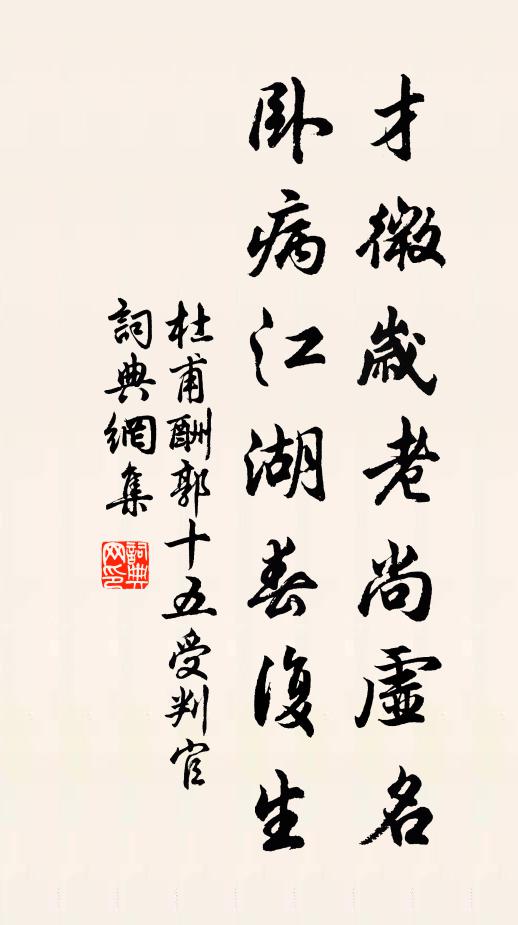 才微歲老尚虛名
卧病江湖春復生
杜甫酬郭十五受判官
詞典網集
詞典
网印